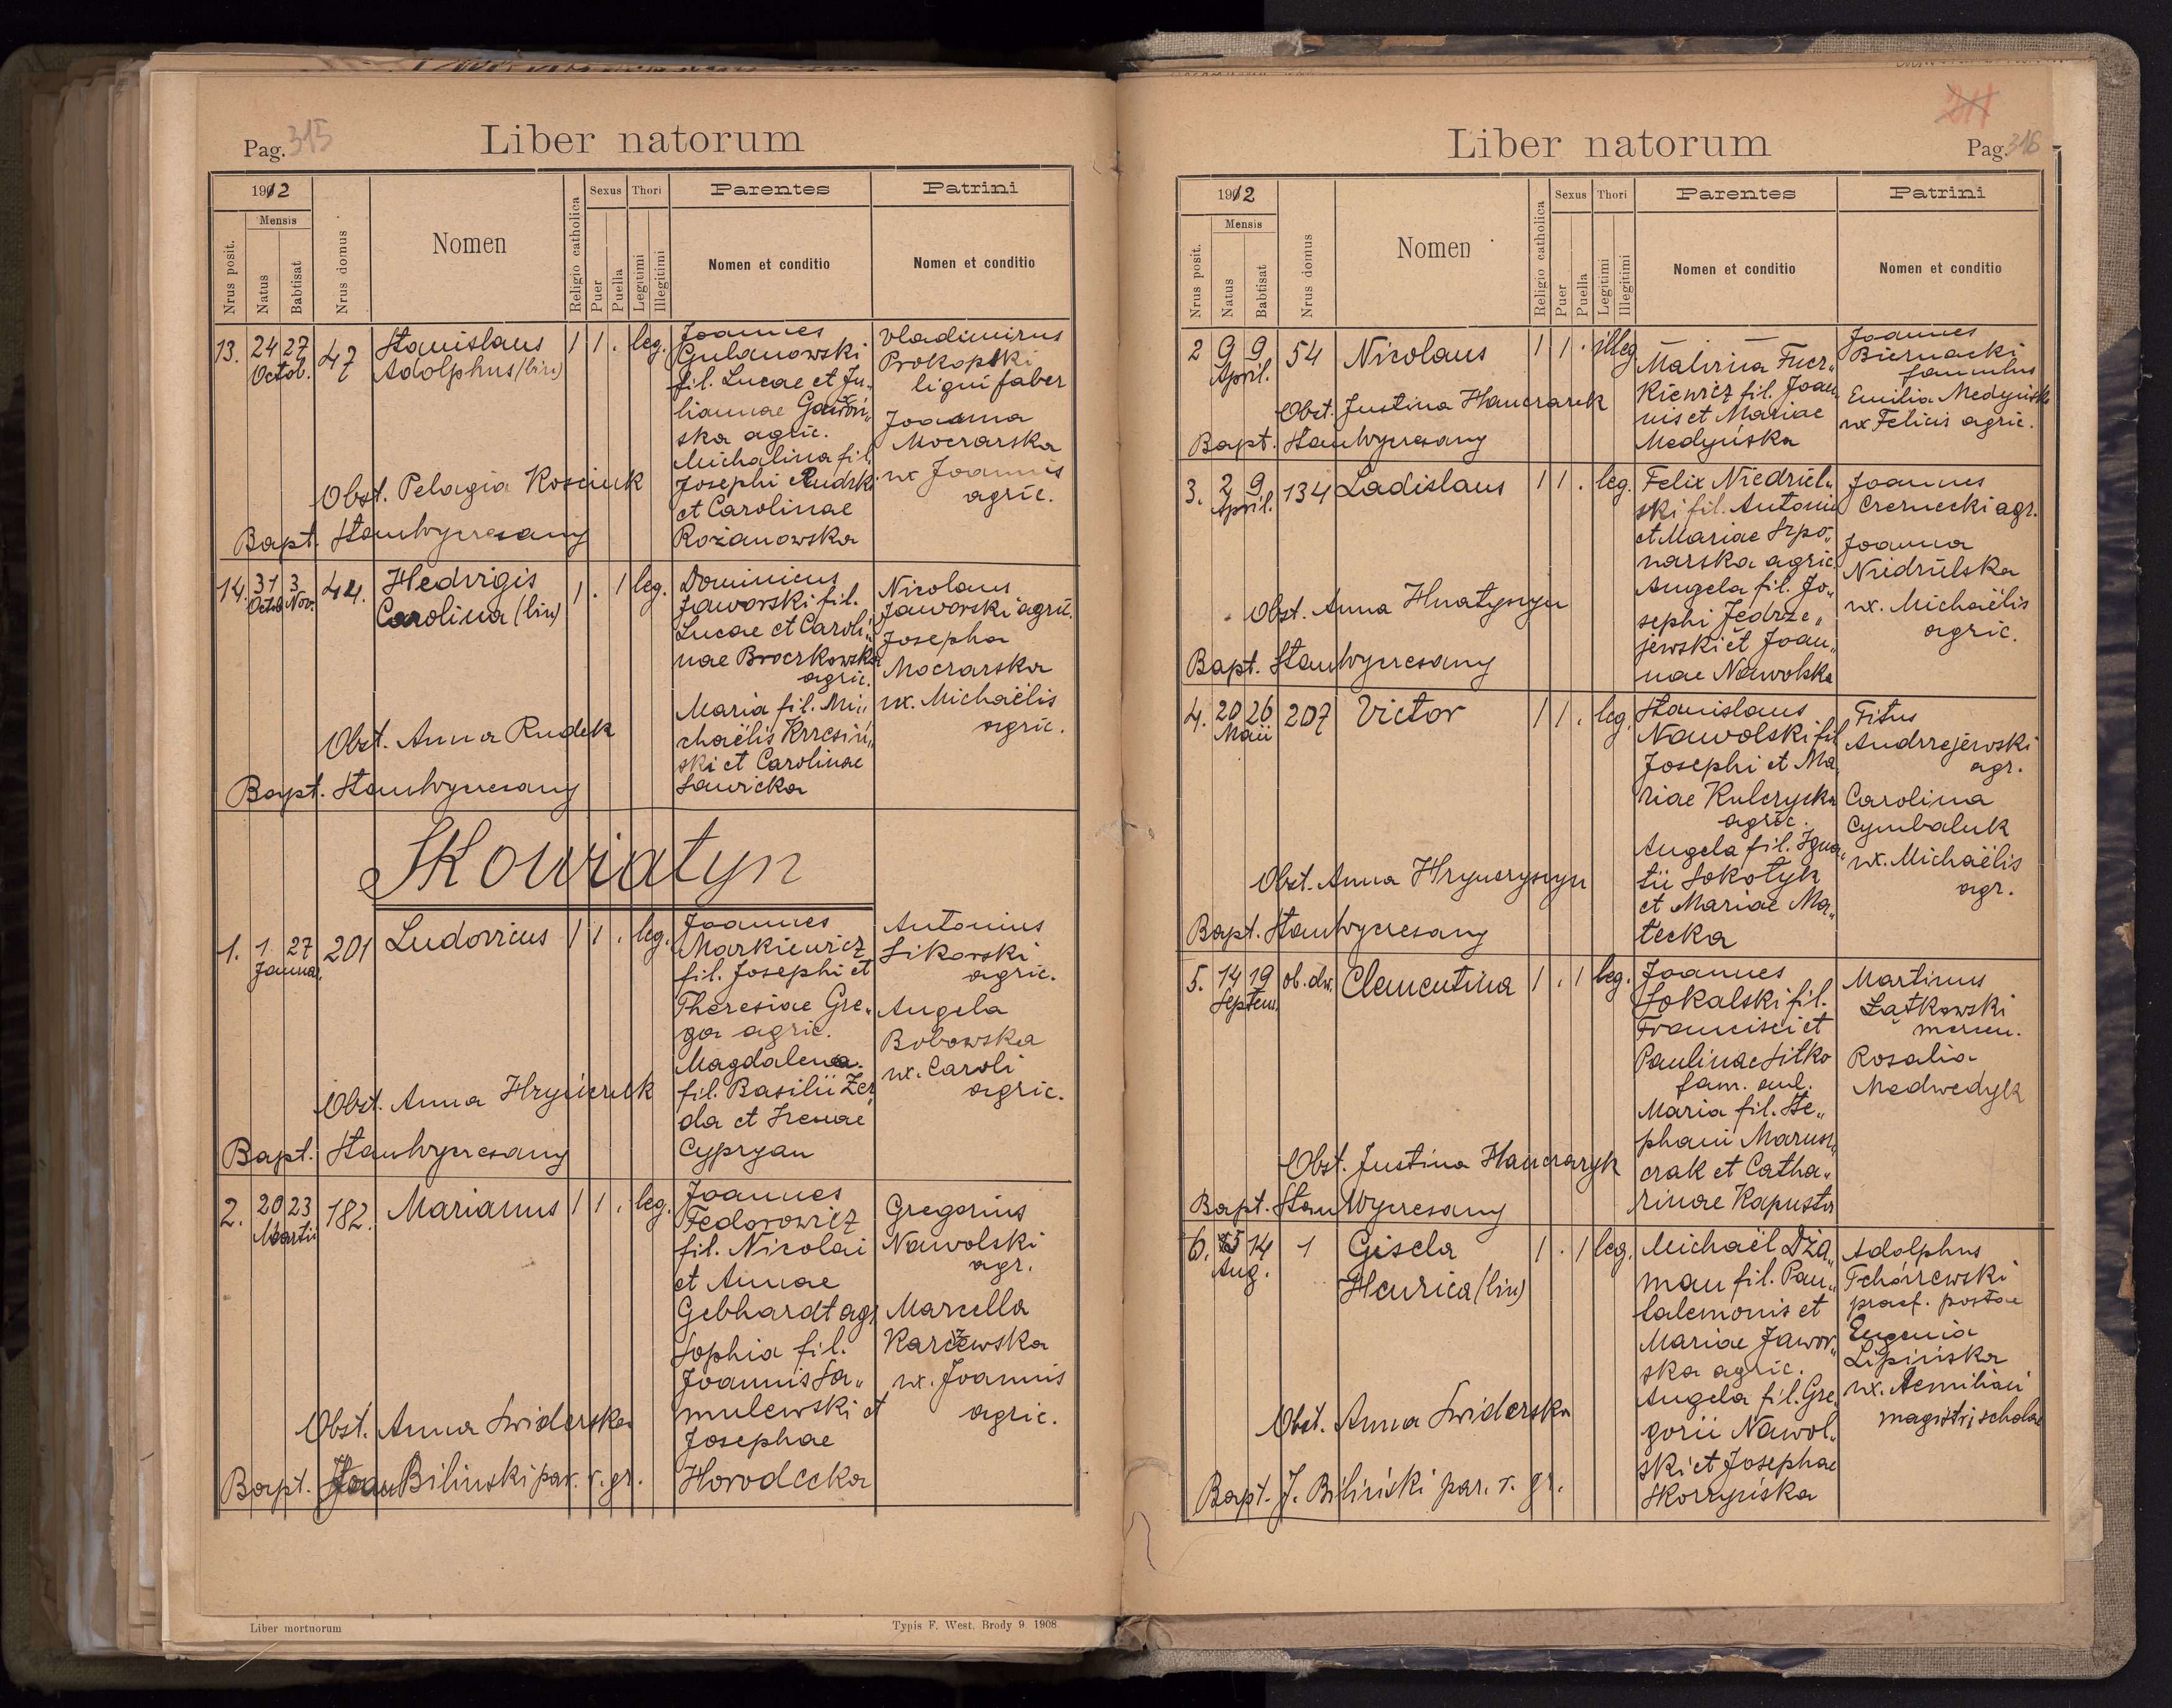 Pag. 315
Liber natorum
1912
Mensis
Nrus posit.
Natus
Babtisat
Nrus domus
Nomen
Religio catholica
Sexus
Puer
Puella
Thori
Legitimi
Illegitimi
Parentes
Nomen et conditio
Patrini
Nomen et conditio
13. 24 27 Octob. 47 Stanislaus Adolphus (bin) 1 1 . leg.
Joannes
Gulanowski
fil. Lucae et Ju„
liannae
ska agric.
Michalina fil.
Josephi Rudzki
et Carolinae
Rożanowska
Vladimirus
Prokopski
ligni faber
Joanna
Moczarska
ux Joannis
agric.
Obst. Pelagia Kosciuk
Bapt. Stan Wyczesany
14. 31 Octob 3 Nov. 44. Hedvigis Carolina (bin) 1 . 1 leg.
Dominicus
Jaworski fil.
Lucae et Caroli„
nae Broczkowska
agric.
Maria fil. Mi„
chaëlis Krzesiń„
ski et Carolinae
Sawicka
Nicolaus
Jaworski agric.
Josepha
Moczarska
ux. Michaëlis
agric.
Obst. Anna Rudek
Bapt. Stan Wyczesany
Skowiatyn
1. 1 27 Januar. 201 Ludovicus 1 1 . leg.
Joannes
Markiewicz
fil. Josephi et
Theresiae Gre„
ga agric.
Magdalena
fil. Basilii Zer„
da et Irenae
Cypryan
Antonius
Sikorski
agric.
Angela
Bobowska
ux. Caroli
agric.
Obst. Anna Hryńczuk
Bapt. Stan Wyczesany
2. 20 23 Martii 182. Marianus 1 1 . leg.
Joannes
Fedorowicz
fil. Nicolai
et Annae
Gebhardt agr.
Sophia fil.
Joannis Sa„
mulewski et
Josephae
Horodecka
Gregorius
Nawolski
agr.
Marcella
Karczewska
ux. Joannis
agric.
Obst. Anna Swiderska
Bapt. Bilinski par. r. gr.
Liber mortuorum
Typis F. West, Brody 9. 1908
Liber natorum
211
Pag. 316
1912
Mensis
Nrus posit.
Natus
Babtisat
Nrus domus
Nomen
Religio catholica
Sexus
Puer
Puella
Thori
Legitimi
Illegitimi
Parentes
Nomen et conditio
Patrini
Nomen et conditio
2 9 9 April. 54 Nicolaus 1 1 . illeg
Malvina Fucz„
kiewicz fil. Joan„
nis et Mariae
Medyńska
Joannes
Biernacki
famulus
Emilia Medyńska
ux Felicis agric.
Obst. Justina Hanczaruk
Bapt. Stan Wyczesany
3. 2 9 April. 134 Ladislaus 1 1 . leg.
Felix Niedziel„
ski fil. Antonii
et Mariae Szpo„
narska agric.
Angela fil. Jo„
sephi Jędrze„
jewski et Joan„
nae Nawolska
Joannes
Czernecki agr.
Joanna
Niedzielska
ux. Michaëlis
agric.
Obst. Anna Hnatyszyn
Bapt. Stan Wyczesany
4. 20 26 Maii 207 Victor 1 1 . leg.
Stanislaus
Nawolski fil
Josephi et Ma„
riae Kulczycka
agric.
Angela fil. Igna„
tii Sokołyk
et Mariae Ma„
tecka
Titus
Andrzejewski
agr.
Carolina
Cymbaluk
ux. Michaëlis
agr.
Obst. Anna Hrynczyszyn
Bapt. Stan Wyczesany
5. 14 19 Septem. ob. dw. Clementina 1 . 1 leg.
Joannes
Sokalski fil.
Francisci et
Paulinae Sitko
fam. aul.
Maria fil. Ste„
phani Marusz„
czak et Catha„
rinae Kapusta
Martinus
Łątkowski
mercen.
Rosalia
Medwedyk
Obst. Justina Hanczaryk
Bapt. Stan Wyczesany
6. 5 14 Aug. 1 Gisela Henrica (bin) 1 . 1 leg.
Michaël Dża„
man fil. Pan„
talemonis et
Mariae Jawor„
ska agric.
Angela fil. Gre„
gorii Nawol„
ski et Josephae
Skorzyńska
Adolphus
Tchórzewski
praef. postae
Eugenia
Lipińska
ux. Aemiliani
magistri scholae
Obst. Anna Swiderska
Bapt. J. Biliński par. r. gr.